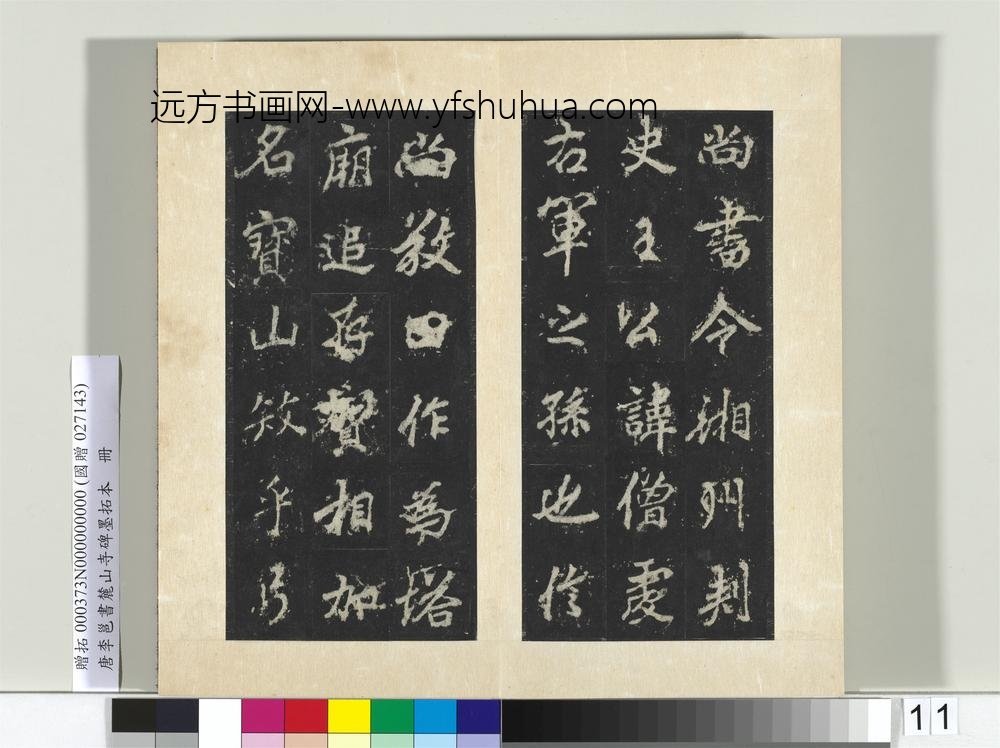 远方书画网-www.yfshuhua.com
尚書令湘州刺
史王公諱僧虔
右軍之孫也信
尚敎曰作爲塔
廟追存寶相加
名寶山欸乎乃
贈拓 000373N000000000 (國贈 027143)
唐李邕書麓山寺碑墨拓本 冊
11